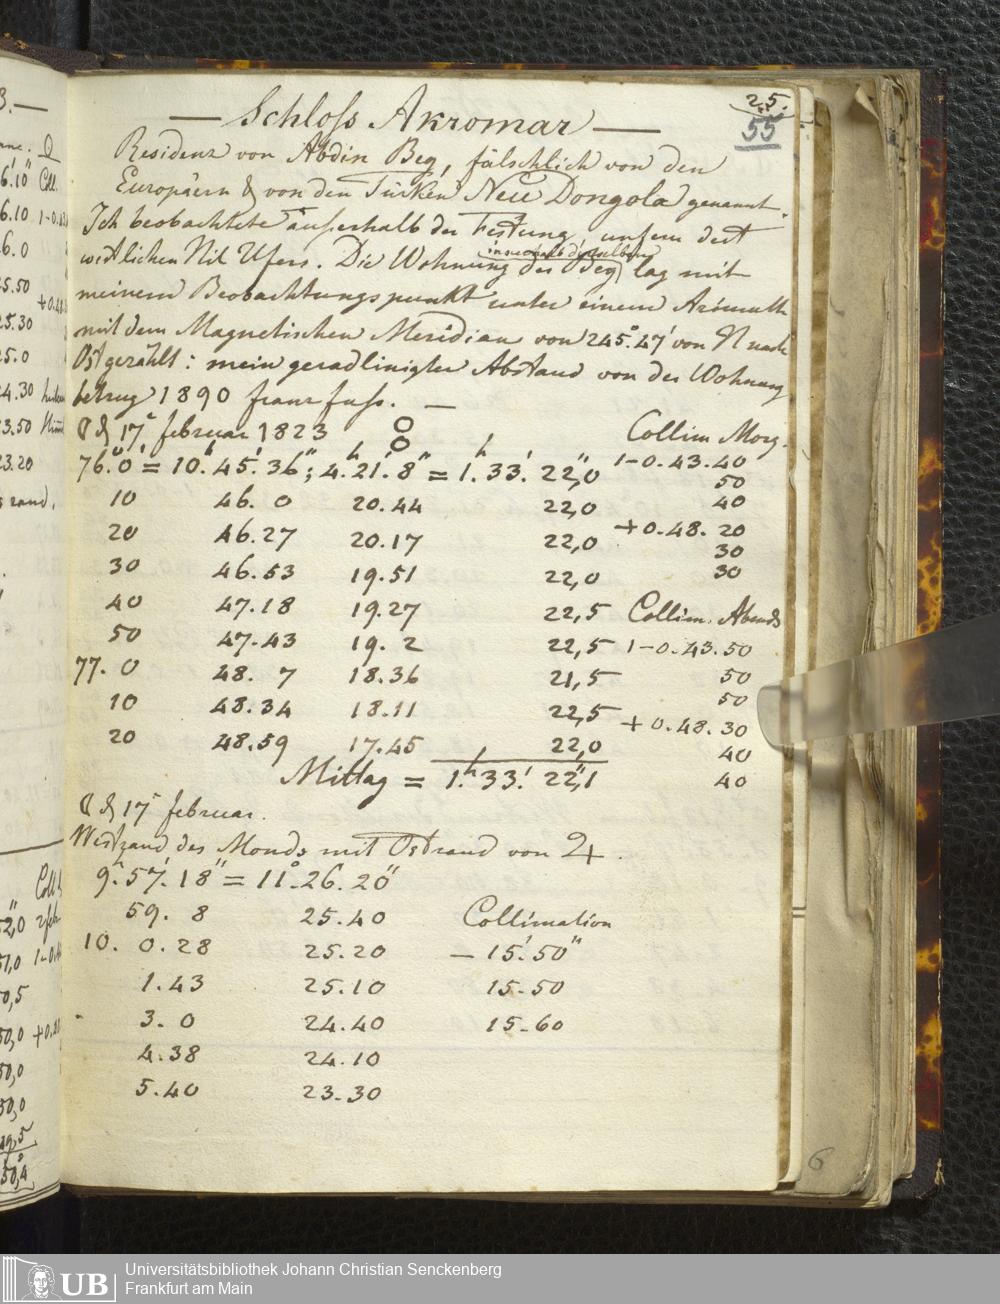 25.
55
— Schloss Akromar —
Residenz von Abdin Beg, fälschlich von den
Europäern & von den Türken Neu Dongola genannt.
Ich beobachtete ausserhalb der Festung, unfern dest
westlichen Nil Ufers. Die Wohnung des Beg lag mit
innerhalb derselben
meinem Beobachtungspunkt unter einem Azimuth
mit dem Magnetischen Meridian von 245°.47' von N nach
Ost gezählt: mein geradlinigter Abstand von der Wohnung
betrug 1890 franz fuss. —
17 februar 1823
Collim Morg.
76.°0' = 10.h 45.' 36"; 4.h 21.' 8" = 1.h 33.' 22,"0 1-0.43.40
50
10 46. 0 20.44 22,0 40
20 46.27 20.17 22,0 +0.48.20
30
30 46.53 19.51 22,0 30
40 47.18 19.27 22,5 Collim. Abends
50 47.43 19. 2 22,5 1-0.43.50
77. 0 48. 7 18.36 21,5 50
50
10 48.34 18.11 22,5 +0.48.30
20 48.59 17.45 22,0 40
Mittag = 1.h 33.' 22,"1 40
17 februar.
Westrand des Monds mit Ostrand von ♃.
9.h 57.' 18" = 11.° 26. 20"
59. 8 25.40 Collimation
10. 0.28 25.20 — 15.'50"
1.43 25.10 15.50
3. 0 24.40 15.60
4.38 24.10
5.40 23.30
6
UB
Universitätsbibliothek Johann Christian Senckenberg
Frankfurt am Main